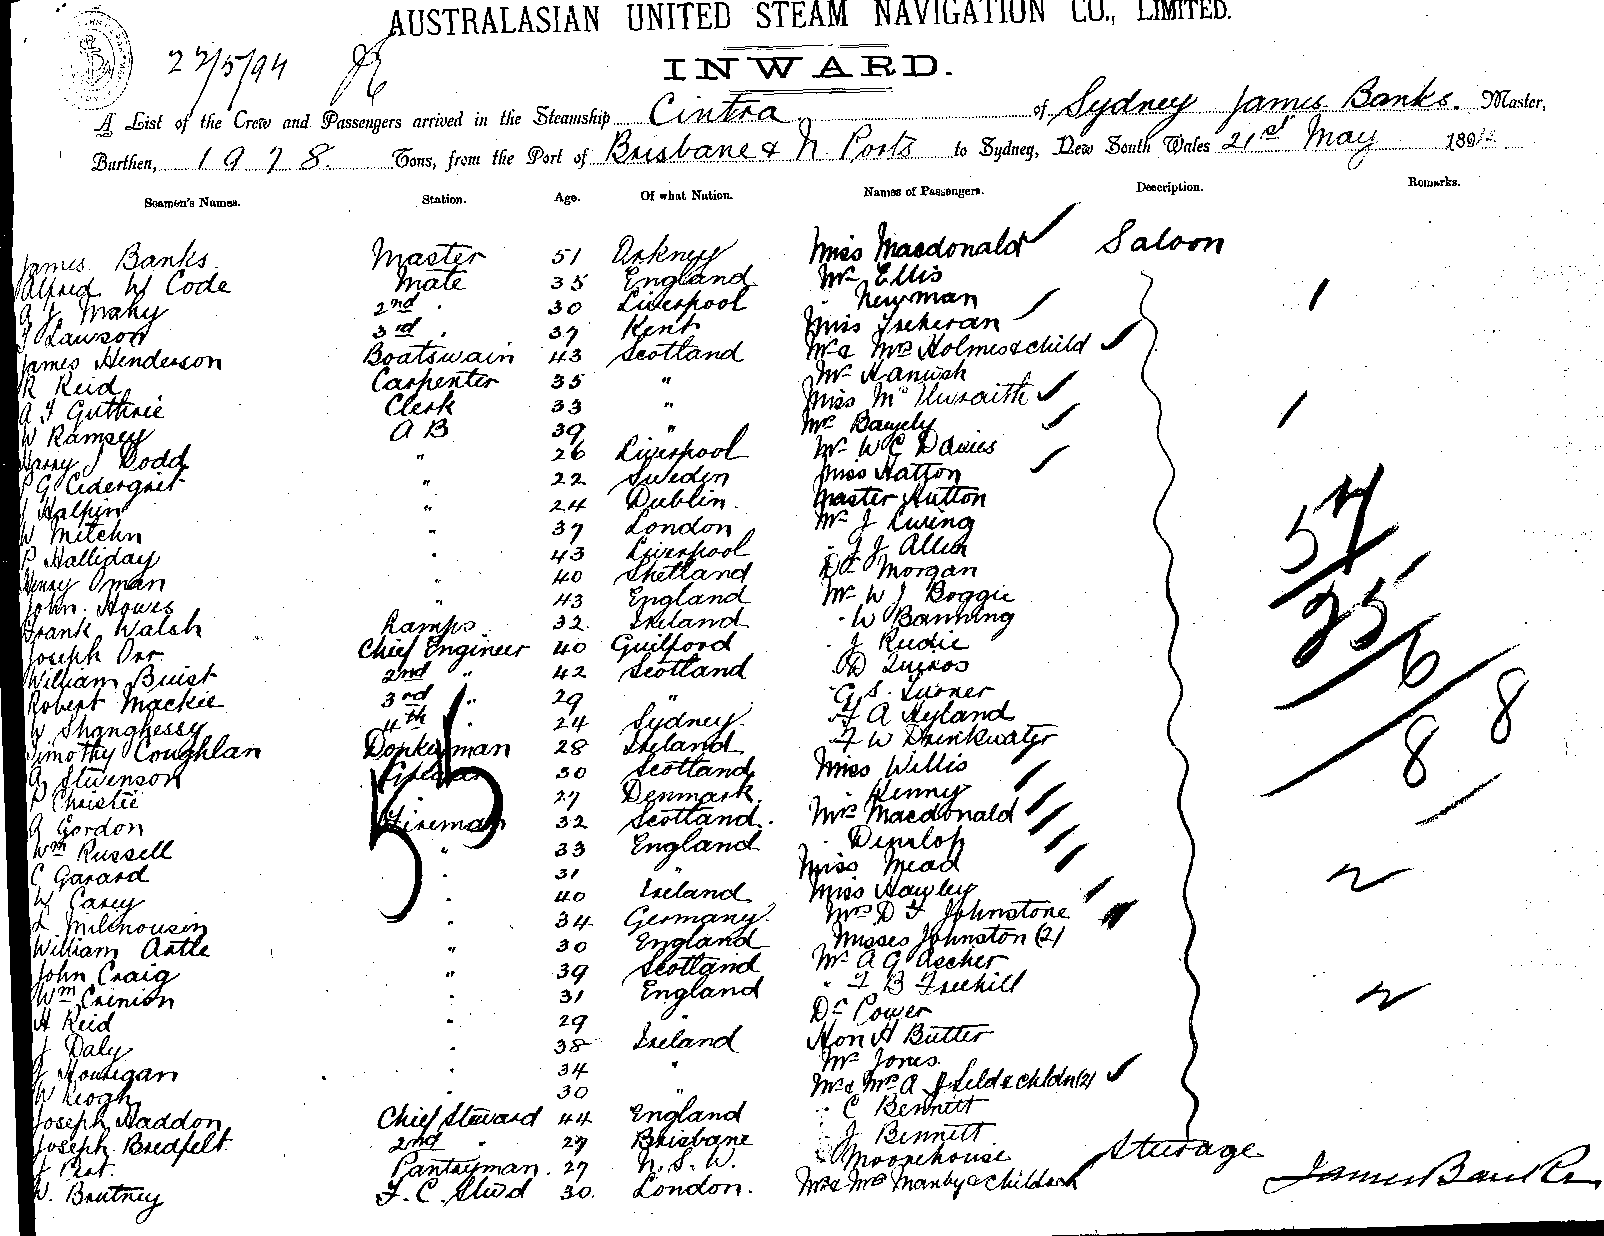 AUSTRALASIAN UNITED STEAM NAVIGATION CO., LIMITED.
22/5/94
INWARD.
A List of the Crew and Passengers arrived in the Steamship Cintra of Sydney James Banks. Master,
Burthen, 1978. Tons, from the Port of Brisbane & N Ports to Sydney, New South Wales 21st May 189
Seamen's Names. Station. Age. Of what Nation. Names of Passengers. Description. Remarks.
James Banks Master 51 Orkney Miss Macdonald Saloon
Alfred W Code Mate 35 England Mr Ellis
Mahy 2nd " 30 Liverpool " Newman
Lawson 3rd " 37 Kent Miss
James Henderson Boatswain 43 Scotland Mr & Mrs Holmes & child
R Reid Carpenter 35 " Mr
A F Guthrie Clerk 33 " Miss
W Ramsey A B 39 "
Harry J Dodd " 26 Liverpool Mr W C Davies
Cederquist " 22 Sweden Miss Hatton
J Halpin " 24 Dublin. Master Hutton
W " 37 London Mr J
P Halliday " 43 Liverpool " J Allen
Henry Oman " 40 Shetland Dr Morgan
John Howes " 43 England Mr W J Boggie
Frank Walsh Lamps 32 Ireland " W Banning
Joseph Orr Chief Engineer 40 Guilford " J
William Buist 2nd " 42 Scotland " D
Robert Mackie 3rd " 29 " " G. S. Turner
W Shanghessy 4th " 24 Sydney " F A Hyland
Timothy Coughlan Donkeyman 28 Ireland " F W Drinkwater
Stevenson 30 Scotland Miss Willis
P Christie 27 Denmark " Kenny
Gordon Fireman 32 Scotland. Mrs Macdonald
Wm Russell " 33 England " Dunlop
C Garard " 31 " Miss Mead
W Carey " 40 Ireland Miss Hawley
" 34 Germany Mrs D F Johnstone
William Astle " 30 England Misses Johnston (2)
John Craig " 39 Scotland Mr A G Ascher
Wm Crenion " 31 England " F B Freehill
H Reid " 29 Dr Power
J Daly " 38 Ireland Hon H Butter
J Hourigan " 34 " Mr Jones
W Keogh " 30 " Mr & Mrs A Field & childn (2)
Joseph Haddon Chief Steward 44 England " C Bennett
Joseph Bredfelt 2nd " 27 Brisbane " J Bennett
Pantryman. 27 N. S. W. " Moorehouse Steerage
W. Brutney F. C. Stwd 30. London. Mr & Mrs Manby & children
James Banks